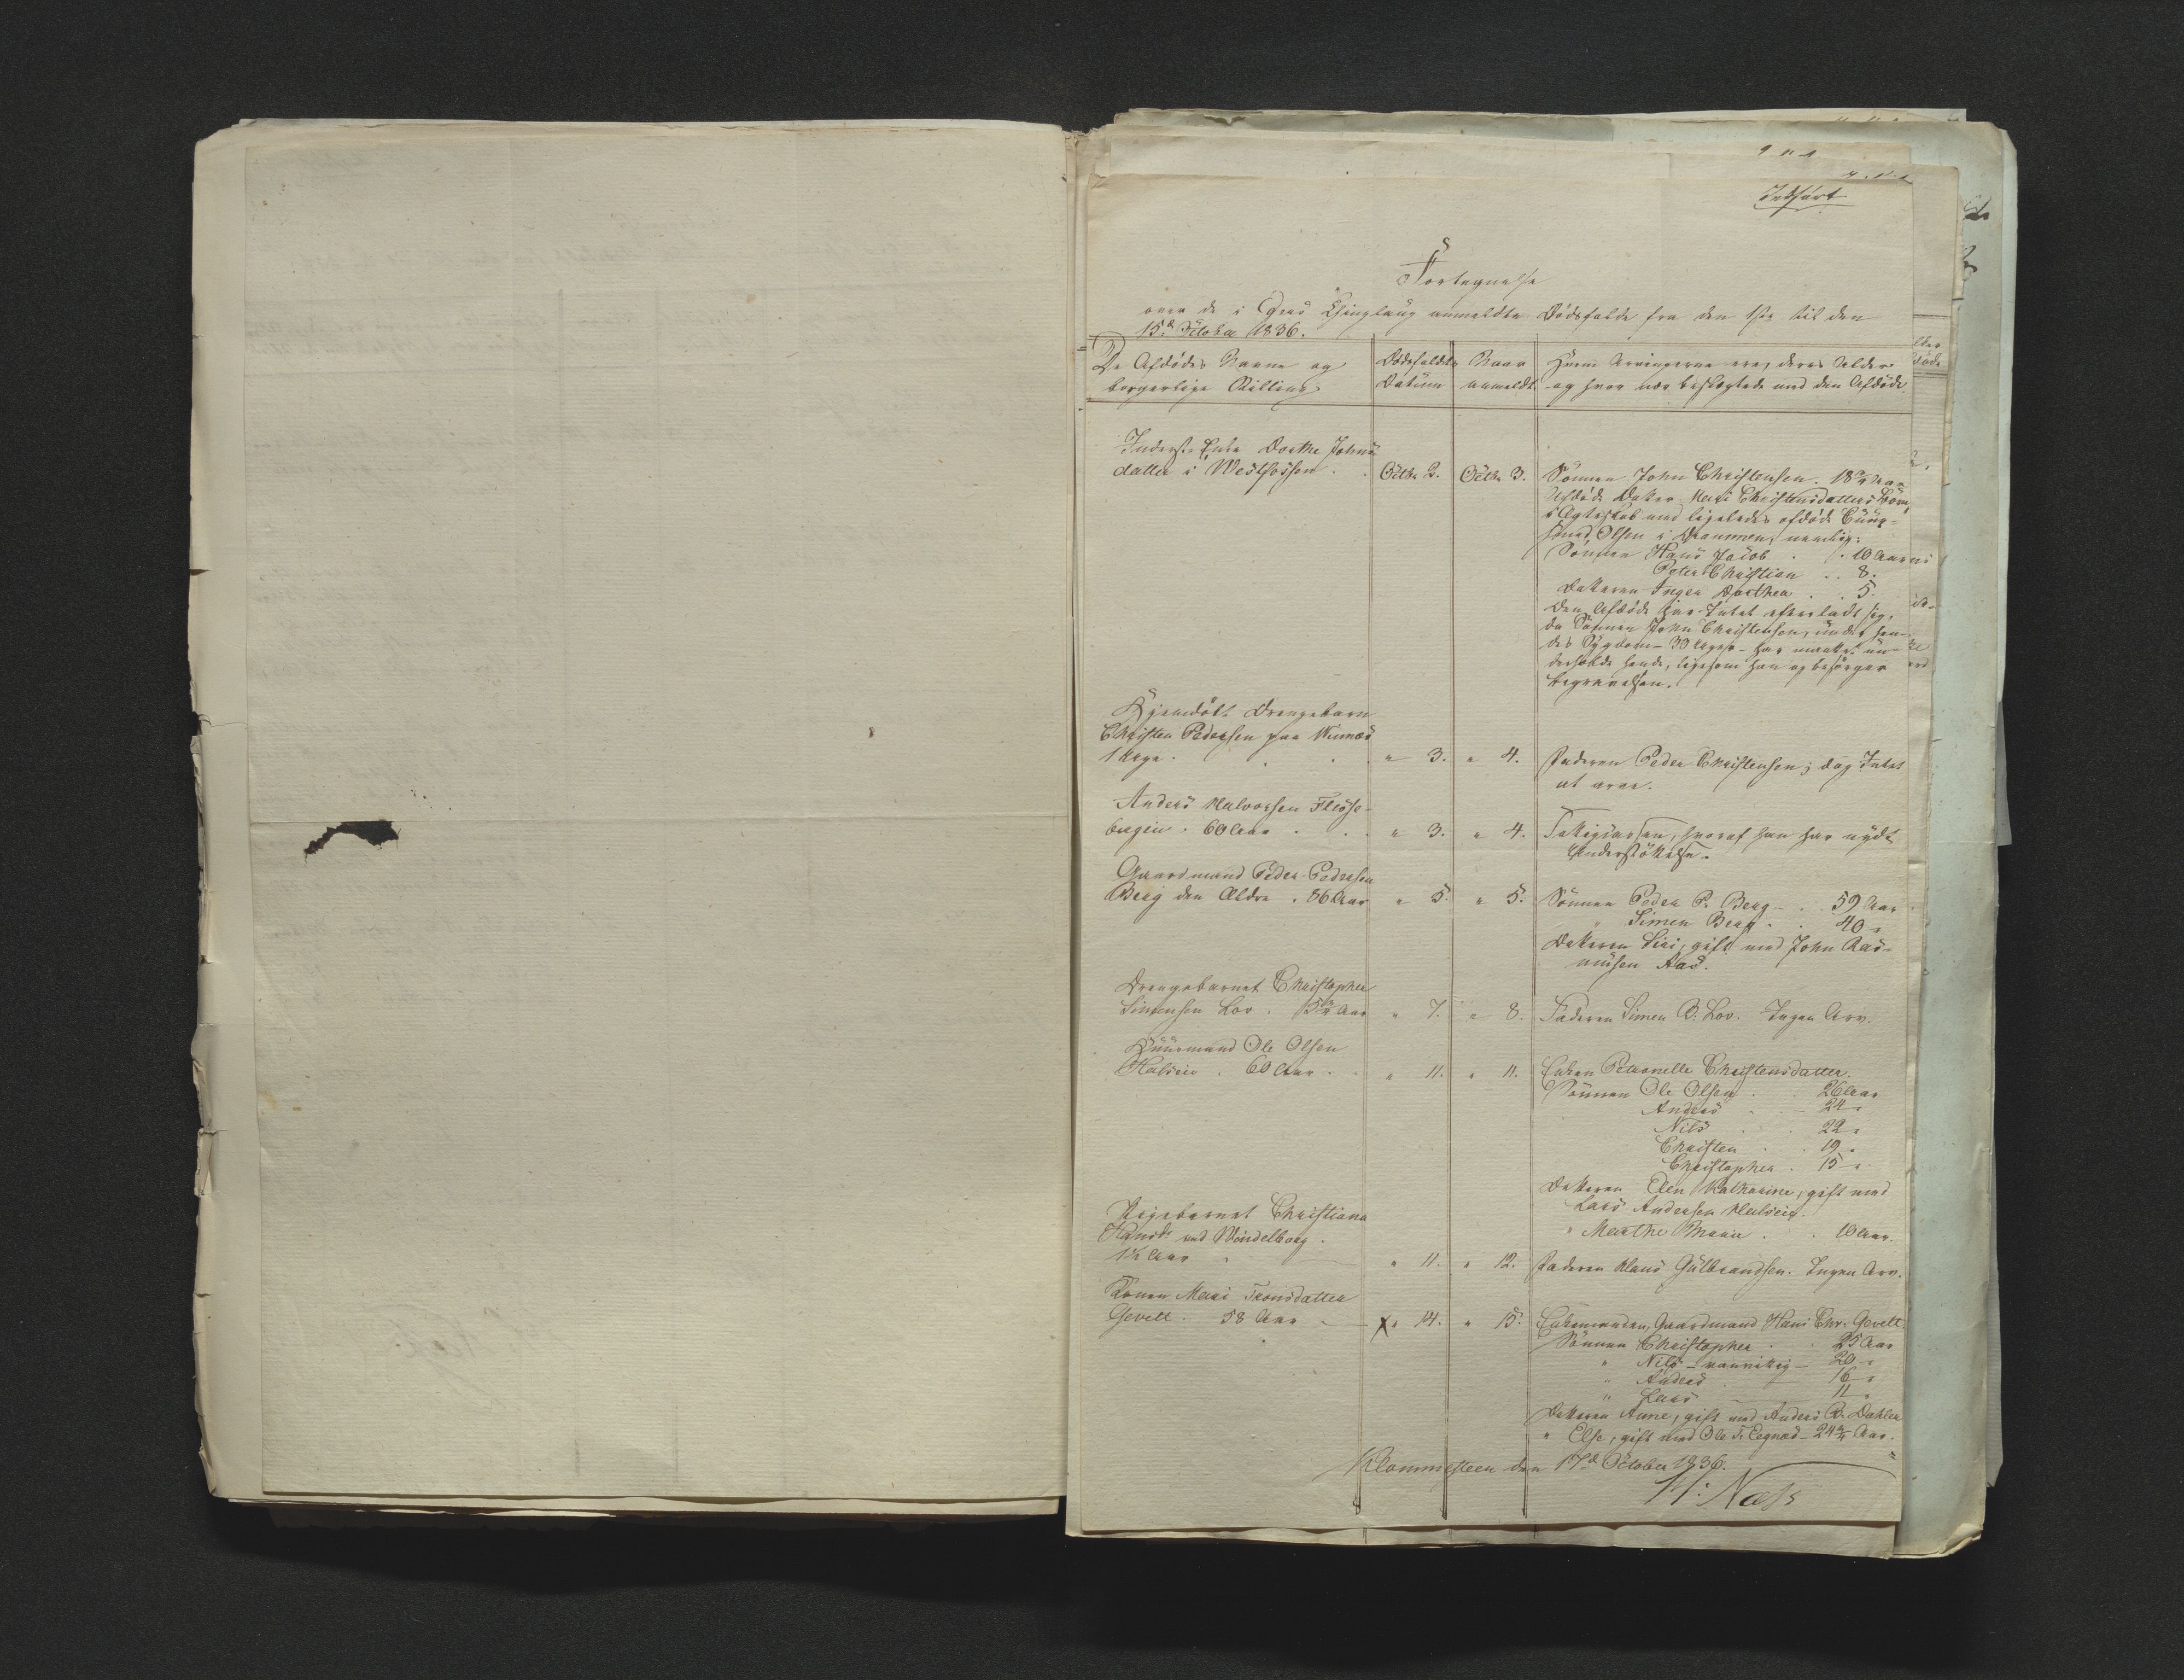 Indført
Fortegnelse
over de i Egers Thinglaug anmeldte Dødsfalde fra den 1ste til den
15de October 1836.
De Afdødes Navne og
borgerlige Stilling
Dødsfaldets
Datum
Naar
anmeldt
Hvem Arvingerne ere, deres Alder
og hvor nær beslægtede med den Afdøde
Inderst-Enke Dorthe Johns-
datter i Westfossen
Octbr 2.
Octbr 3.
Sønnen John Christensen. 18 Aar
Afdøde Datter Mari Christensdatters Børn
i Ægteskab med ligeledes afdøde
Olsen i Drammen, nemlig:
Sønnen Hans Jacob . . 10 Aar
Peter Christian . . 8.
Datteren Inger Dorthea . . 5.
Den Afdøde har Intet efterladt sig,
da Sønnen John Christensen, under hen-
des Sygdom - 30 Uger - har maattet un-
derholde hende, ligesom han og besørger
Begravelsen.
Hjemdøbt Drengebarn
Christen Pedersen paa
1 Uge.
" 3.
" 4.
Faderen Peder Christensen; dog Intet
at arve.
Anders Halvorsen Fløse-
60 Aar
" 3.
" 4.
Fattigcassen, hvoraf han har nydt
Understøttelse.
Gaardmand Peder Pedersen
Berg den Ældre . 86 Aar
" 5.
" 5.
Sønnen Peder P. Berg . 59 Aar
" Simen Berg . 40 "
Datteren Siri, gift med John Ras-
musen Aas.
Drengebarnet Christopher
Simensen Lov . Aar
" 7.
" 8.
Faderen Simen B. Lov. Ingen Arv.
Huusmand Ole Olsen
Halseie . 60 Aar .
" 11.
" 11.
Enken Petronelle Christensdatter.
Sønnen Ole Olsen . 26 Aar
Anders . 24 "
Nils . 22 "
Christen . 19 "
Christopher . 15 "
Datteren Elen Katharine, gift med
Lars Andersen Halseie.
" Marthe Maria . . 10 Aar.
Pigebarnet Christiana
Hansdr ved Vendelborg .
1½ Aar
" 11.
" 12.
Faderen Hans Gulbrandsen. Ingen Arv.
Konen Mari Tronsdatter
Gevelt . 58 Aar
X " 14.
" 15.
Enkemanden, Gaardmand Hans Chr. Gevelt
Sønnen Christopher . . 25 Aar
" Nils - vanvittig - 20 "
" Anders 16 "
" Lars 11 "
Datteren Anne, gift med Anders Dahler
" Else, gift med Ole T. Tegnæs - 24 Aar.
Klommesteen den 17de October 1836.
H: Næss